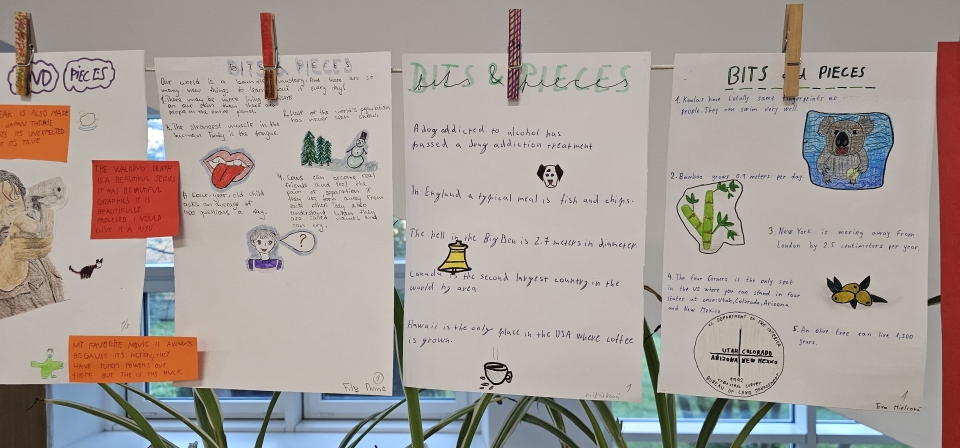 AND PIECES
EAK IS ALSO MADE
THE WALKING DEAD
IS A BEAUTIFUL SERIES
IT HAS BEAUTIFUL
GRAPHICS IT IS
BEAUTIFULLY
I WOULD
GIVE IT A 10/10
MY FAVORITE MOVIE IS AVENGERS
BECAUSE ITS ACTION, THEY
HAVE SUPER POWERS OUT
THERE BUT THE IS THE HULK
1/5
BITS & PIECES
Our world is a beautiful mystery. And here are so
many new things to learn about it every day!
1. There may be more living
on our skin than there are
people in the entire planet.
2. Half of the world's population
has never seen snow.
3. The strongest muscle in the
human body is the tongue.
4. Cows can become real
friends and feel the
pain of separation if
they are torn away from
each other. They also
understand when they
are called names and
can cry.
A four-year-old child
asks an average of
400 questions a day.
?
BITS & PIECES
A dog addicted to alcohol has
passed a drug addiction treatment
In England a typical meal is fish and chips.
The bell in the Big Ben is 2.7 meters in diameter
Canada is the second largest country in the
world by area
Hawaii is the only place in the USA where coffee
is grown.
1
BITS and PIECES
1. Koalas have totally same fingerprints as
people. They can swim very well.
2. Bamboo grows 0.9 meters per day.
3. New York is moving away from
London by 2.5 centimeters per year.
4. The four Corners is the only spot
in the US where you can stand in four
states at once: Utah, Colorado, Arizona
and New Mexico
U.S. DEPARTMENT OF THE INTERIOR
UTAH COLORADO
ARIZONA NEW MEXICO
1992
BUREAU OF LAND MANAGEMENT
5. An olive tree can live 1,500
years.
1
Eva